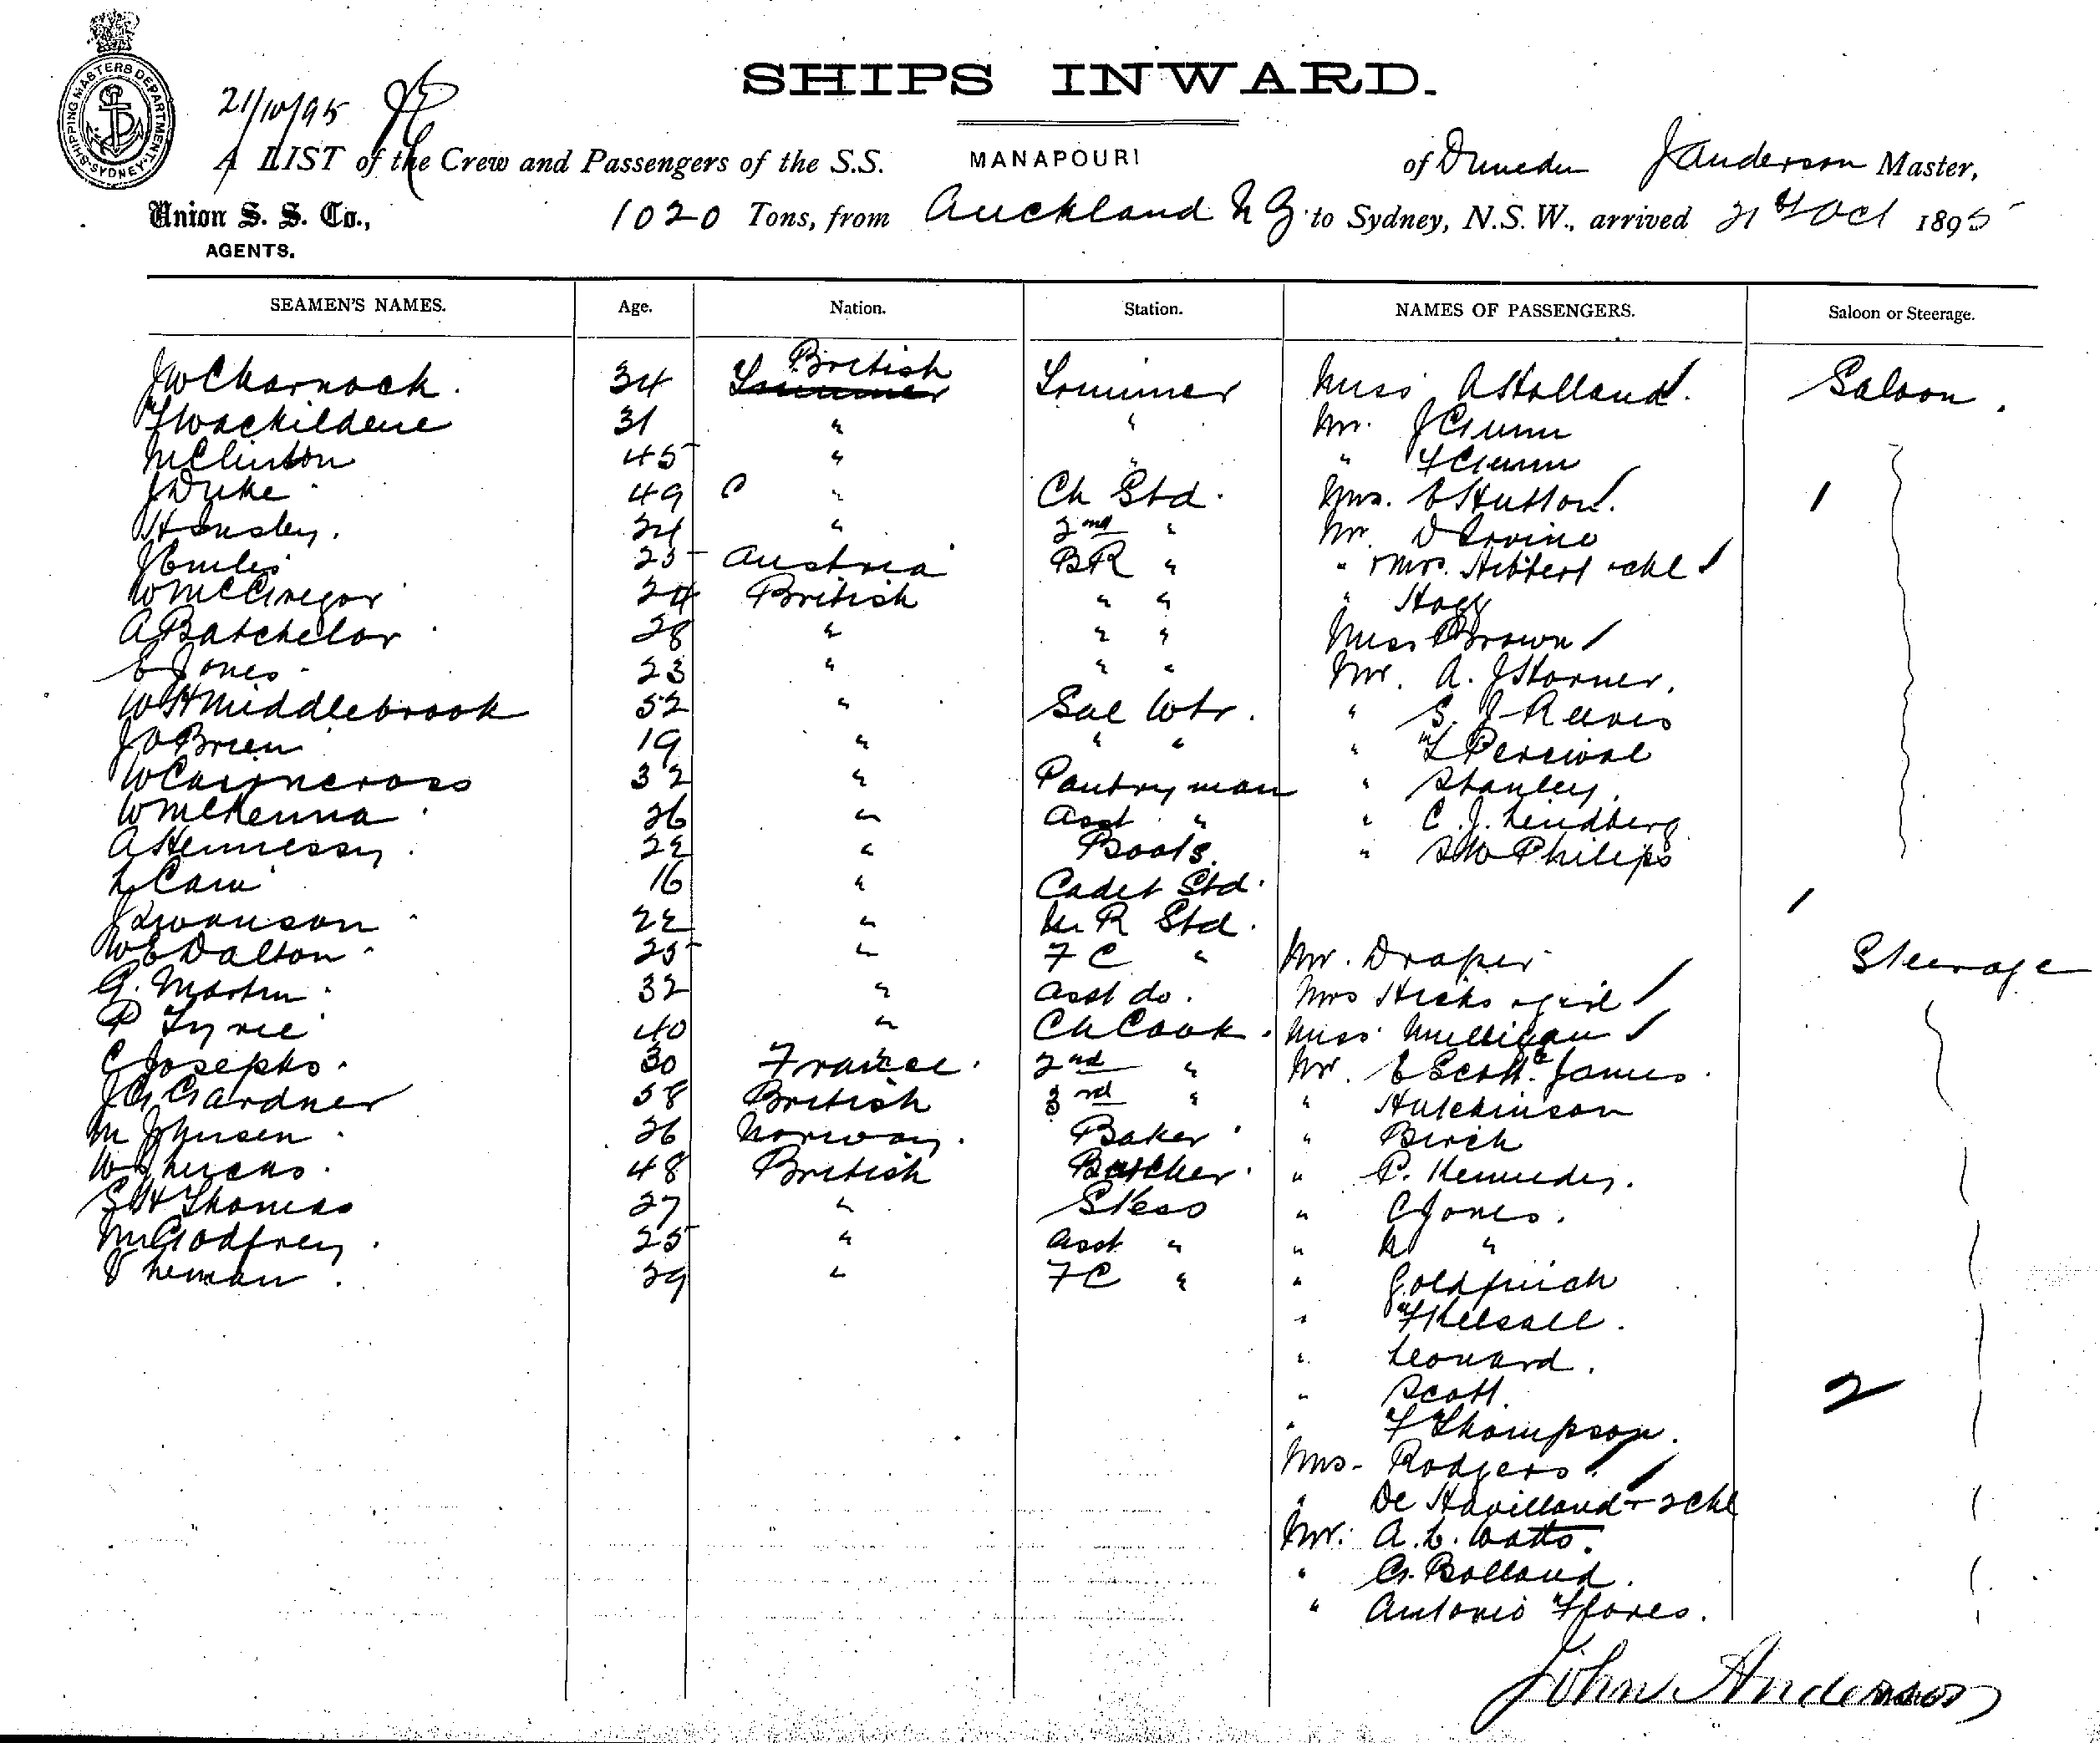 SHIPS INWARD.
SHIPPING MASTERS DEPARTMENT · SYDNEY
21/10/95
A LIST of the Crew and Passengers of the S.S. MANAPOURI of Dunedin J Anderson Master,
Union S. S. Co., AGENTS. 1020 Tons, from Auckland N Z to Sydney, N.S.W., arrived 21st Oct 1895
SEAMEN'S NAMES. Age. Nation. Station. NAMES OF PASSENGERS. Saloon or Steerage.
J W Charnock. 34 British Trimmer Miss A Holland. Saloon.
31 " " Mr. J Gunn
M Clinton 45 " " " F Gunn
J Duke 49 " Ch Std. Mrs. E Hutton. 1
Hensley. " 2nd " Mr. D Irvine
25 Austria BR " " & Mrs. Hibbert & chl
W McGregor 24 British " " " Hogg
A Batchelor 28 " " " Miss Brown
E Jones 23 " " " Mr. A. J Horner.
W H Middlebrook 52 " Sal Wtr. " S. J Reeves
J O Brien 19 " " " " Percival
W Cairncross 32 " Pantryman " Stanley.
W McKenna 26 " Asst " " C. J. Lindberg
A Hennessy. 22 " Boots. " Philips
16 " Cadet Std.
J Swanson 22 " Std. 1
W E Dalton 25 " F C " Mr. Draper Steerage
G. Martin 32 " Asst do. Mrs Hicks & girl
P Tyrie 40 " Ch Cook. Miss Mulligan
C Josephs. 30 France. 2nd " Mr. E Scott James.
J G Gardner 58 British 3rd " " Hutchinson
M Johnsen 26 Norway. Baker " Birch
48 British Butcher. " P. Kennedy.
S H Thomas 27 " Stess " C Jones.
M Godfrey. 25 " Asst " " "
29 " F C " " Goldfinch
" F Kelsall.
" Leonard.
" Scott 2
" F Thompson.
Mrs. Rodgers.
" De Havilland & 2 chl
Mr. A. E. Watts.
" G. Bolland.
" Antonio Flores.
John Anderson